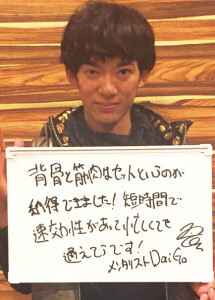 背骨と筋肉はセットというのが
納得できました！短時間で
速効性があって忙しくても
通えそうです！
メンタリストDaiGo